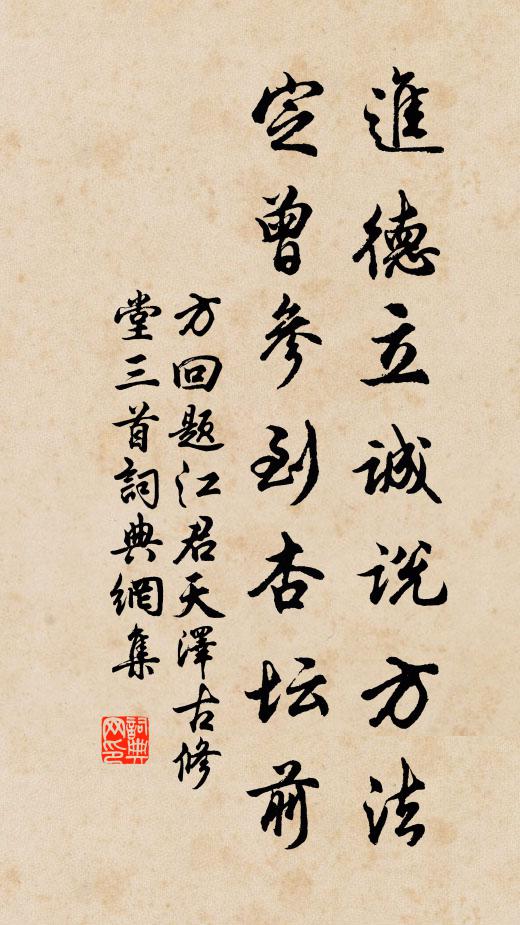 進德立誠説方法
定曾參到杏坛前
方回题江君天澤古修
堂三首詞典網集
詞典网印